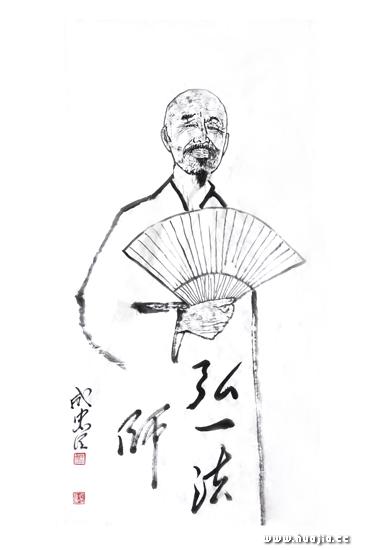 弘一法
师
成忠臣
www.huajia.cc